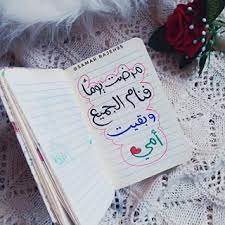 @SAMAR_BAJEHES
مرضت يوماً
فنام الجميع
وبقيت
أمي